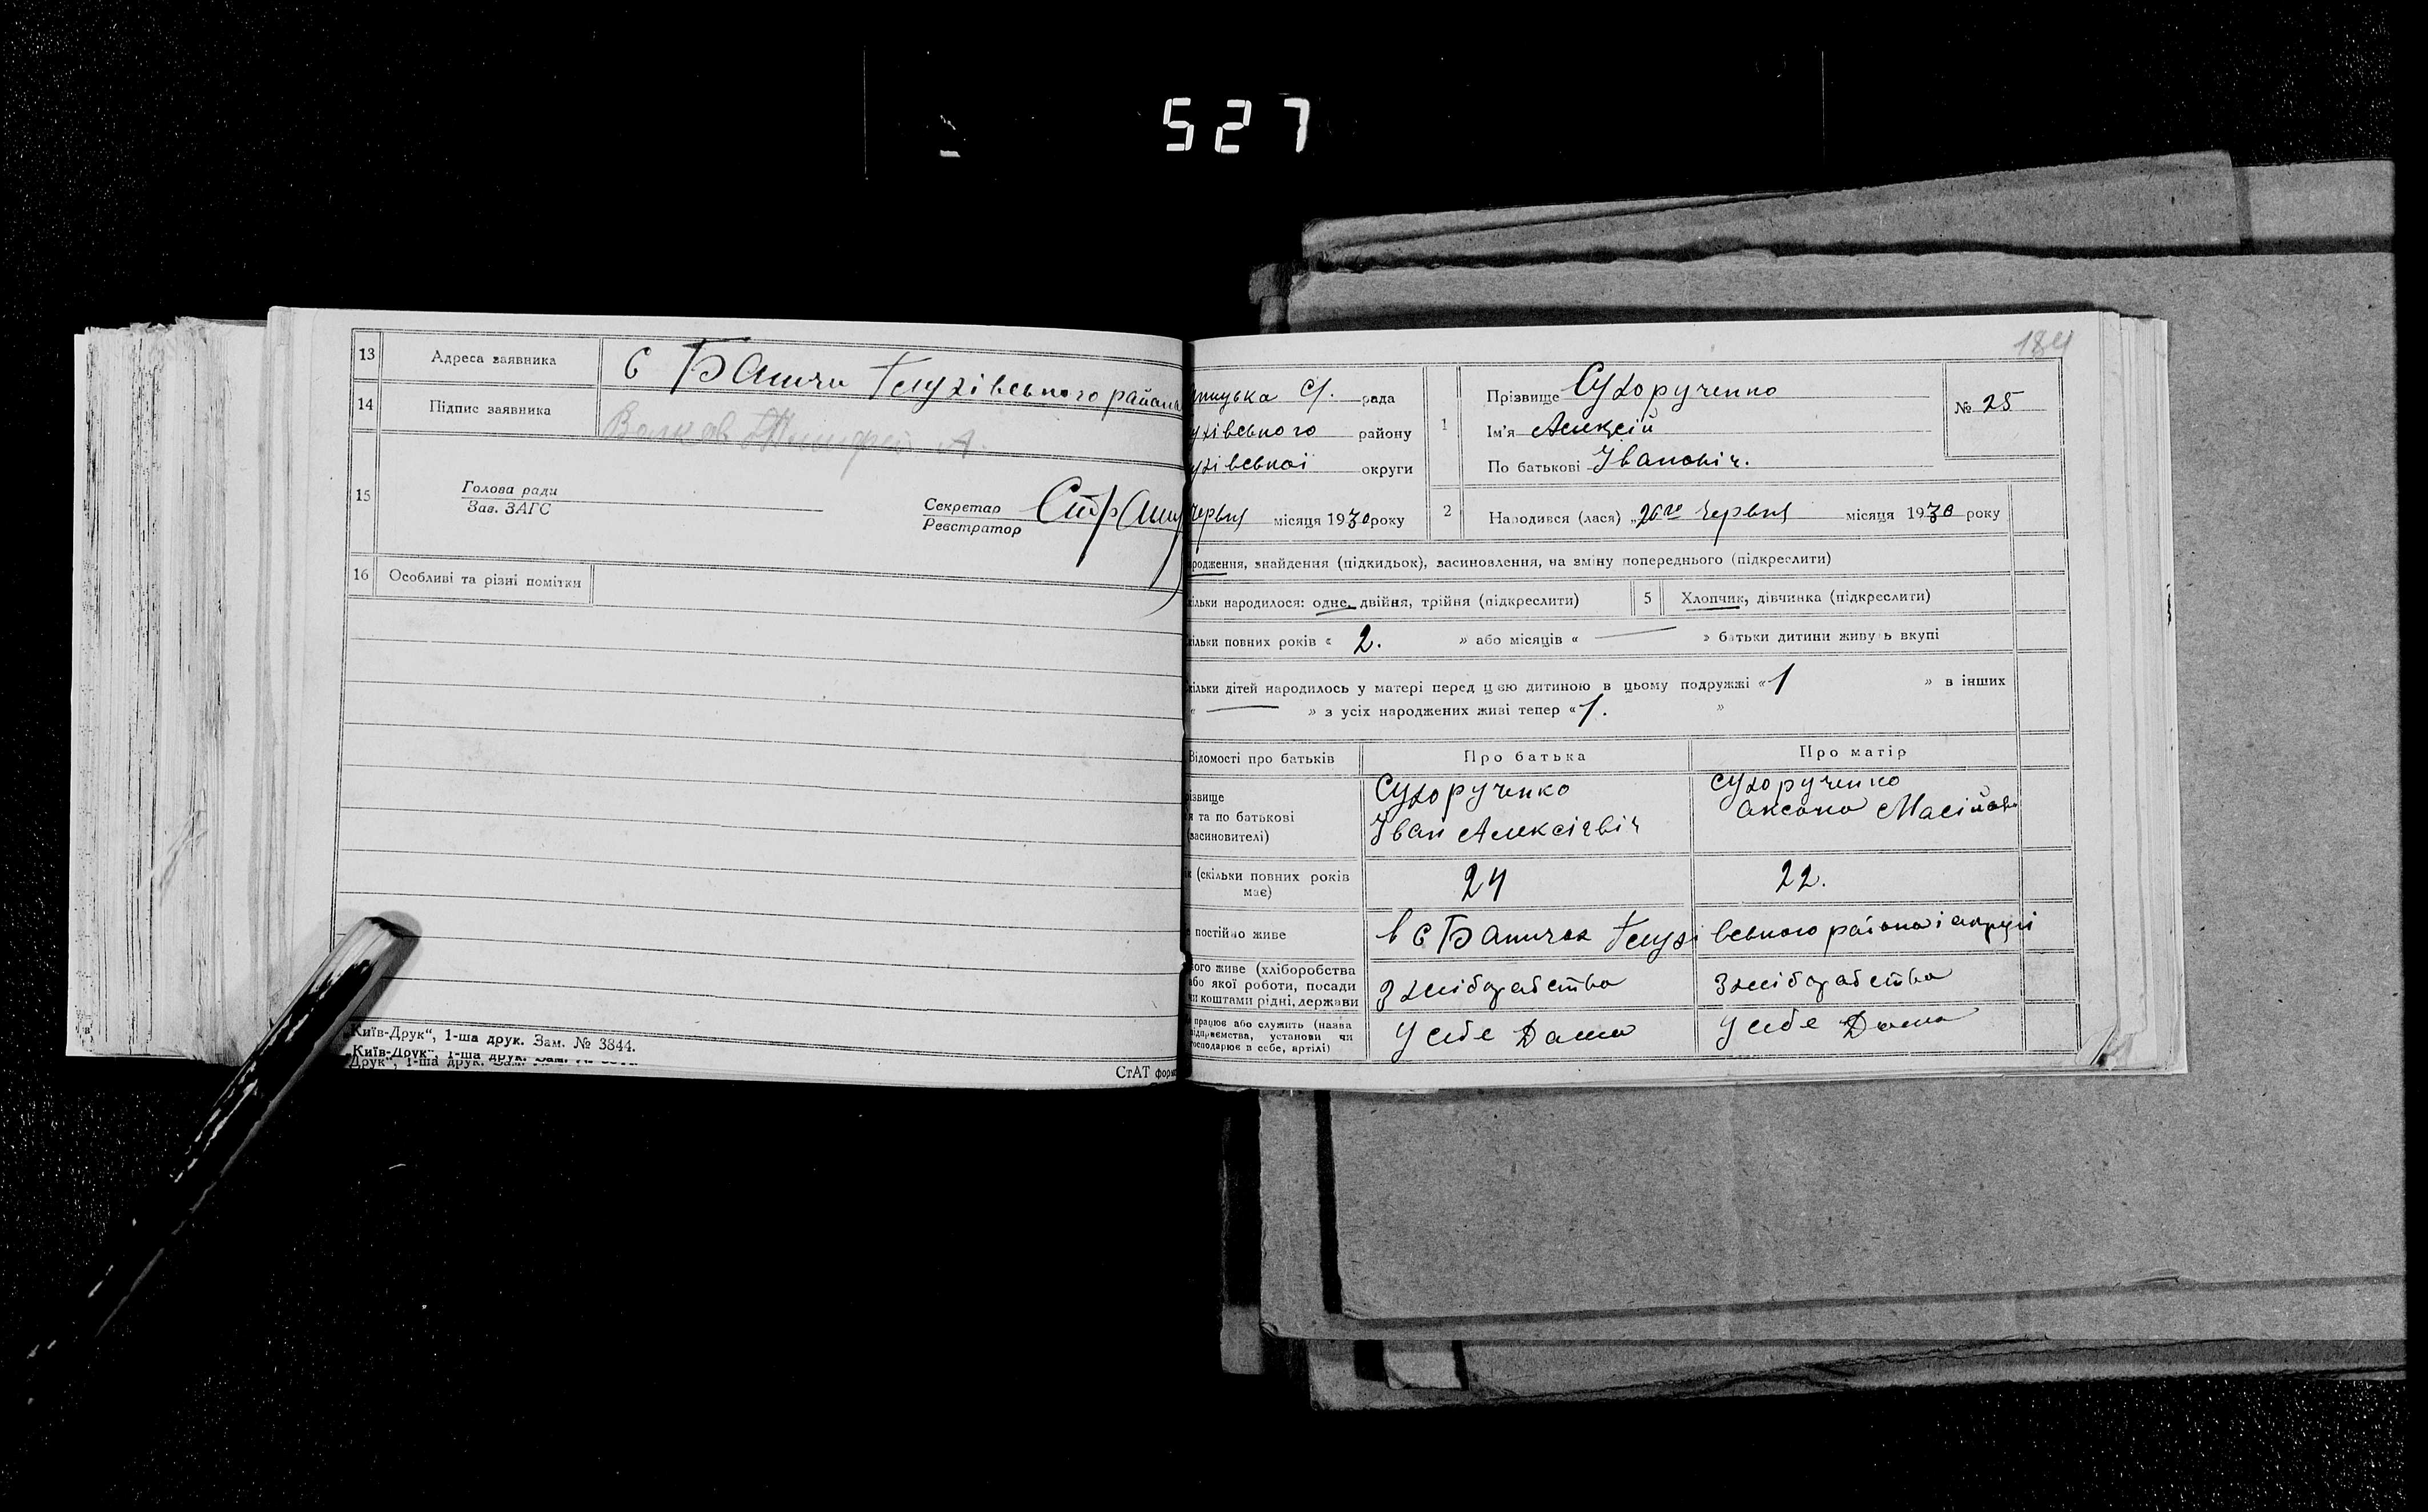 527
13 Адреса заявника с Баничи Глухівського района
14 Підпис заявника Волков
15 Голова ради
Зав. ЗАГС
Секретар
Реєстратор
16 Особливі та різні помітки
Київ-Друк“, 1-ша друк. Зам. № 3844.
„Київ-Друк“, 1-ша друк. Зам.
Друк“, 1-ша друк. Зам.
СтАТ форм
184
ницька С/. рада
ухівського району
ухівської округи
червня місяця 1930 року
1 Прізвище Сухорученко
Ім'я Алексій
По батькові Івановіч.
№ 25
2 Народився (лася) „26го червня місяця 1930 року
родження, знайдення (підкидьок), засиновлення, на зміну попереднього (підкреслити)
кільки народилося: одне, двійня, трійня (підкреслити)
5 Хлопчик, дівчинка (підкреслити)
кільки повних років « 2. » або місяців « — » батьки дитини живуть вкупі
кільки дітей народилось у матері перед цією дитиною в цьому подружжі « 1 » в інших
« — » з усіх народжених живі тепер « 1. »
Відомості про батьків Про батька Про матір
різвище
я та по батькові
(засиновителі)
Сухорученко
Іван Алексієвіч
Сухорученко
Аксана
ік (скільки повних років
має)
24
22.
е постійно живе в с Баничах Глухівського района і округи
чого живе (хліборобства
або якої роботи, посади
чи коштами рідні, держави
З хліборобства
З хліборобства
е працює або служить (назва
підприємства, установи чи
господарює в себе, артілі)
У себе Дома
У себе Дома